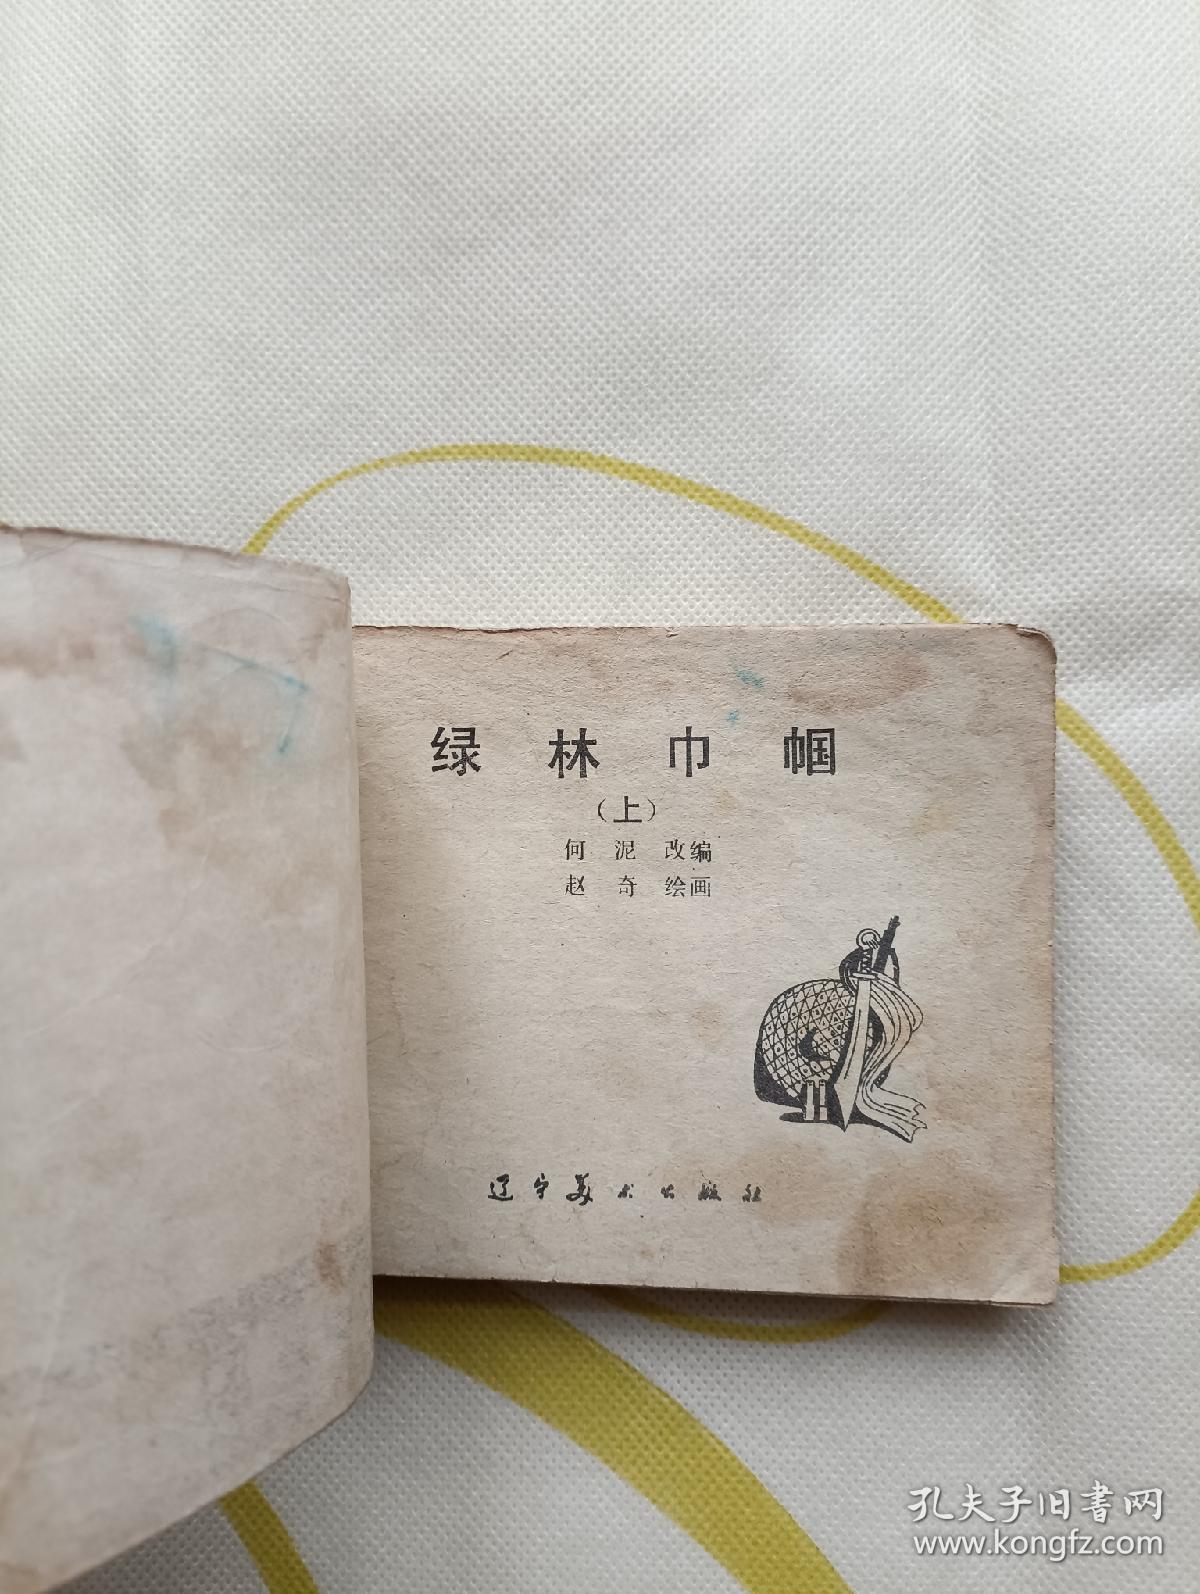 绿林巾帼
（上）
何泥 改编
赵奇 绘画
辽宁美术出版社
孔夫子旧书网
www.kongfz.com